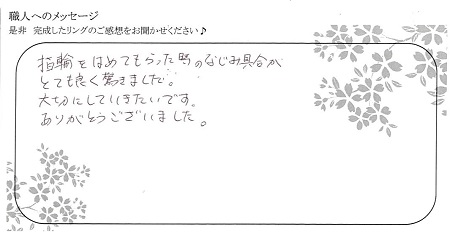 職人へのメッセージ
是非 完成したリングのご感想をお聞かせください♪
指輪をはめてもらった時のなじみ具合が
とても良く驚きました。
大切にしていきたいです。
ありがとうございました。